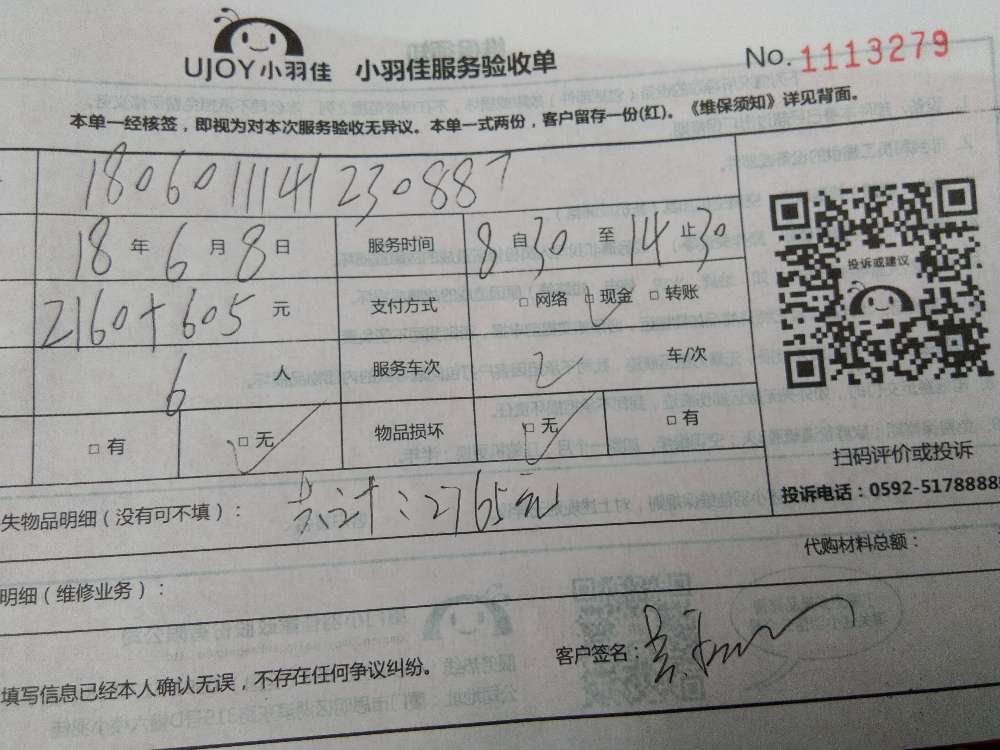 UJOY小羽佳 小羽佳服务验收单 No.1113279
本单一经核签，即视为对本次服务验收无异议。本单一式两份，客户留存一份(红)。《维保须知》详见背面。
1806011141230887
18年6月8日 服务时间 8自30至14止30
2160+605元 支付方式 □网络 □现金 □转账
投诉或建议
6人 服务车次 2车/次
□有 □无 物品损坏 □无 □有
扫码评价或投诉
失物品明细（没有可不填）： 共计：2765元 投诉电话：0592-5178888
代购材料总额：
明细（维修业务）：
客户签名：
填写信息已经本人确认无误，不存在任何争议纠纷。